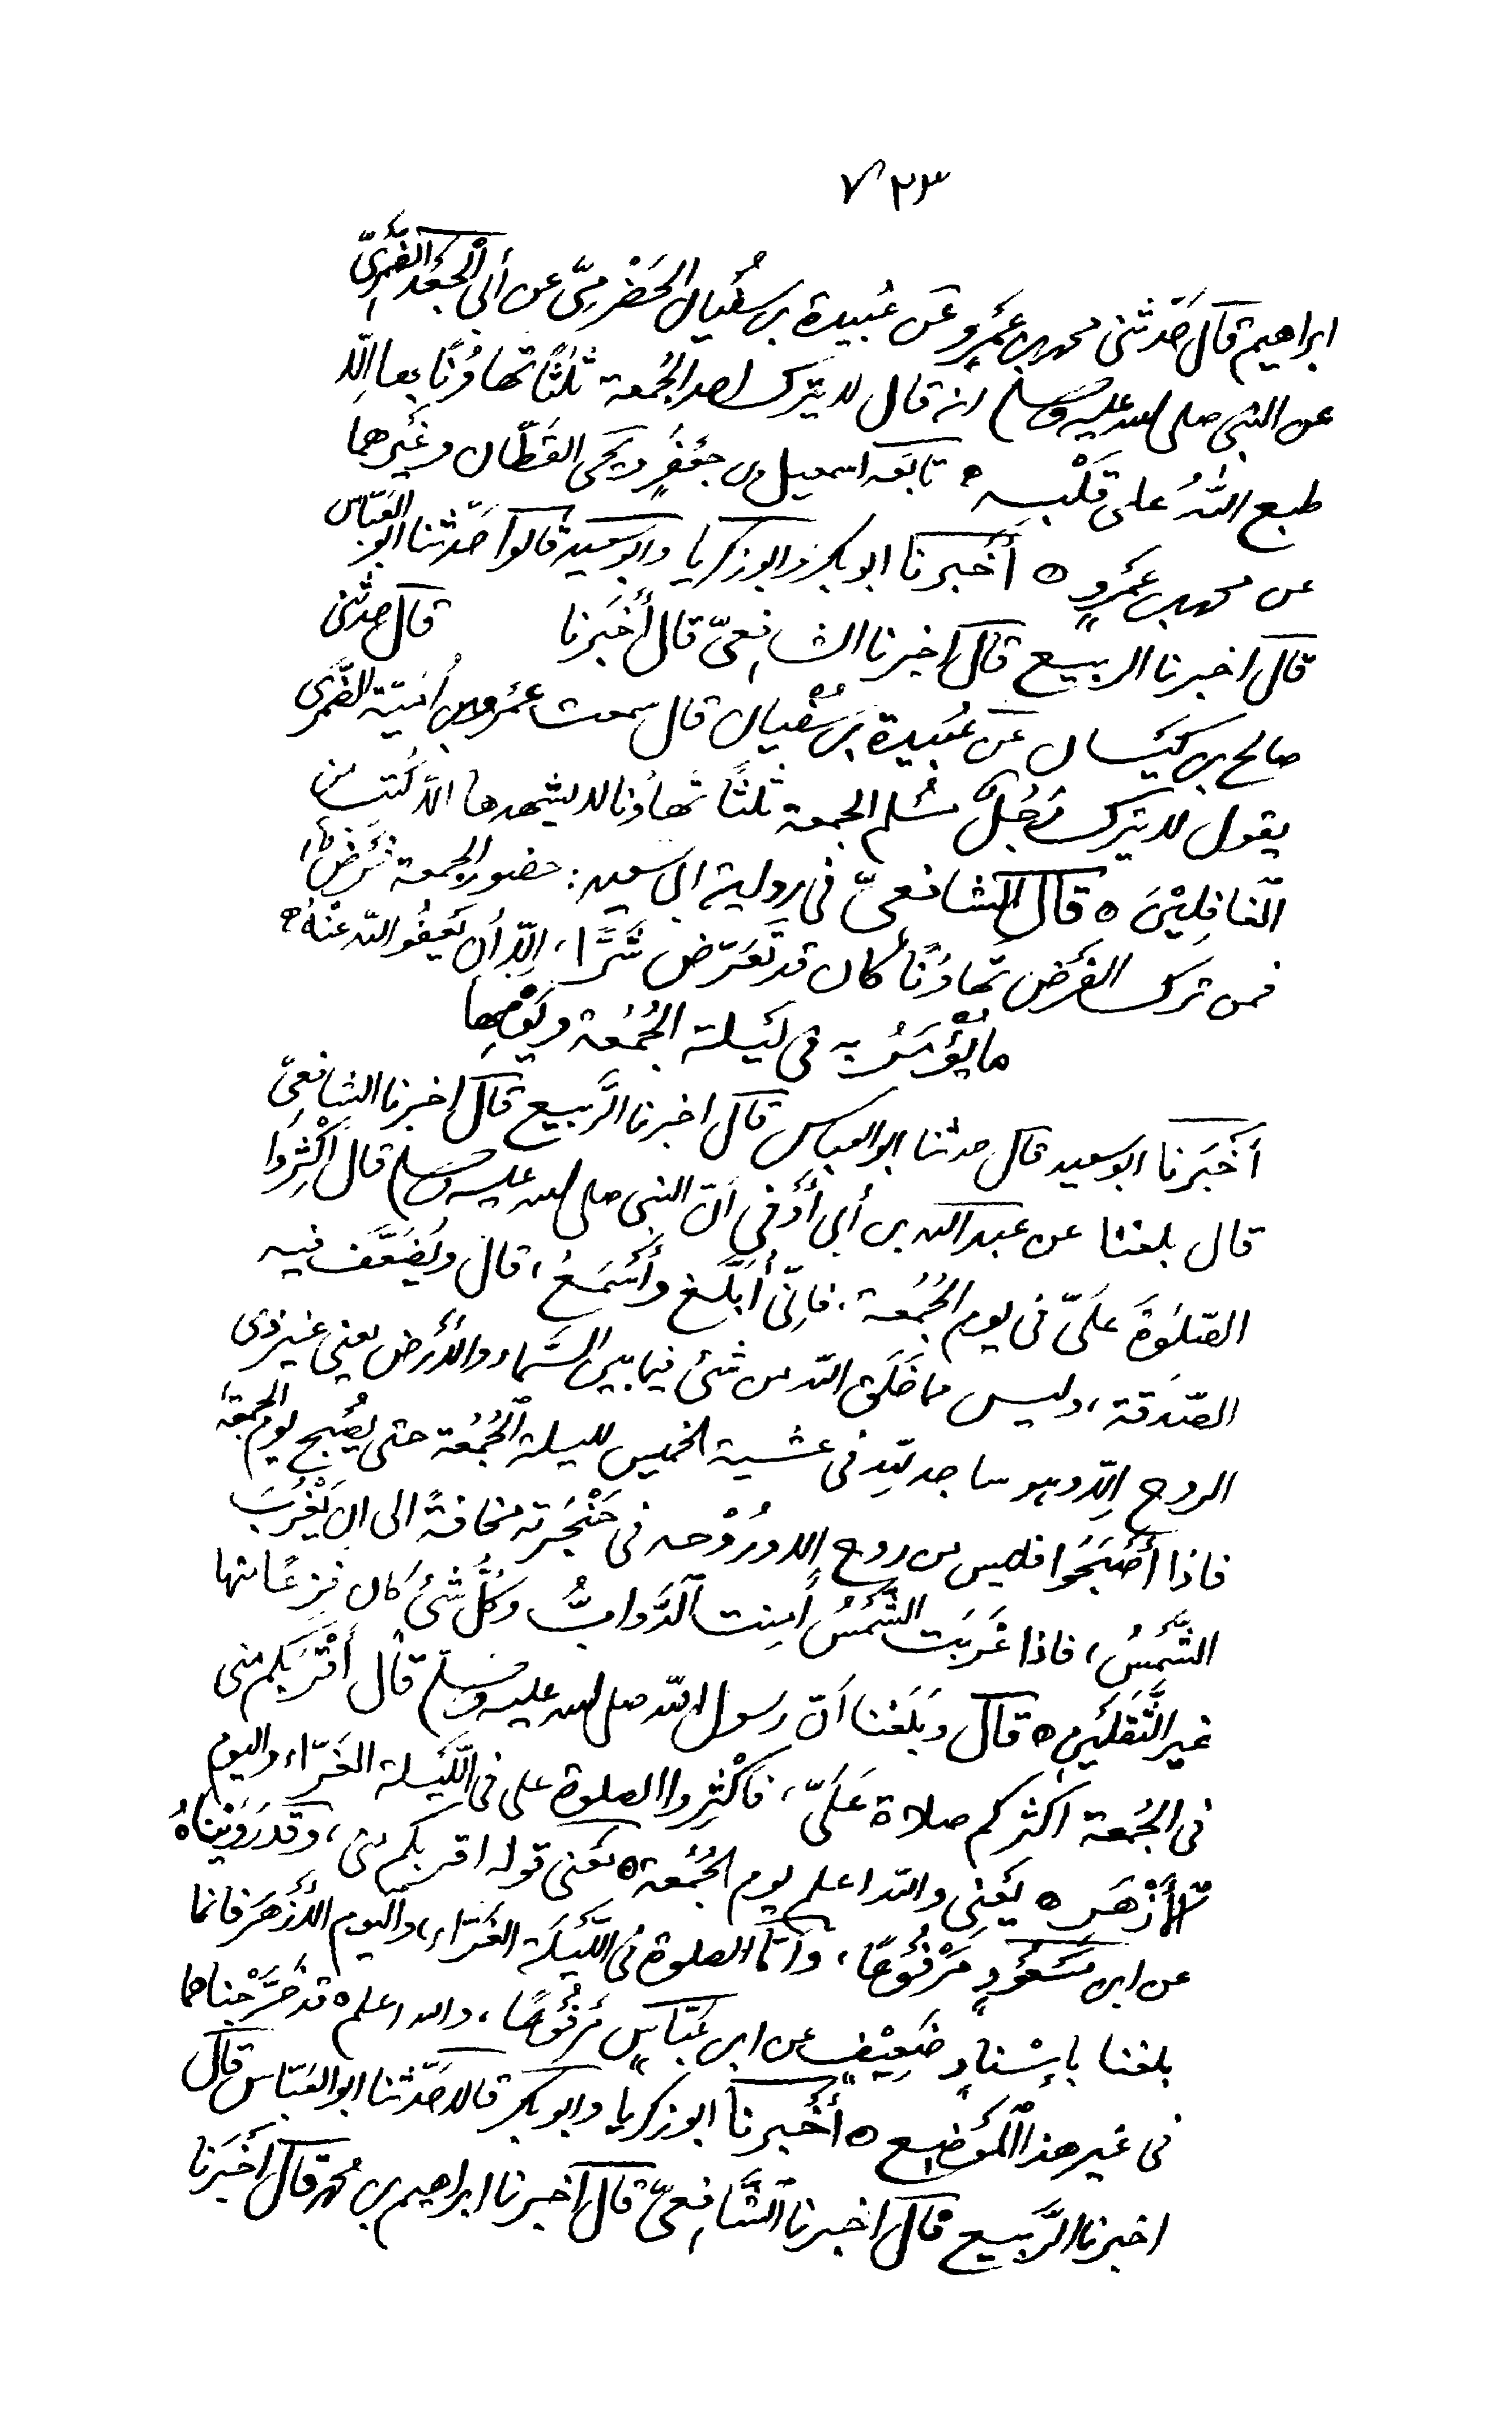 ٧٢٣
ابراهيم قال حَدّثنى محمد بن عَمْرٍو عَن عُبيدة بن سُفيان الحَضْرمِىّ عن أبى الْجَعْد الضَّمْرِىّ
عن النبى صلى الله عليه وسلم انه قال لا يترك احد الجُمعة ثلثًا تهاوُنًا بها الّا
طبع اللهُ على قَلْبِه ه تابَعَه اسمعيل بن جعْفَرٍ ويحيى القَطّان وغَيْرهما
عن محمد بن عَمْرٍو ه أَخْبرنا ابو بكر وابو زكريا وابو سعيد قالوا حَدّثنا ابو العَبّاس
قال اخبرنا الربيع قال اخبرنا الشافِعىّ قال أَخْبَرنا قال حدثنى
صالح بن كَيْسان عَن عُبَيدة بن سُفْيان قال سمعت عمْرو بن اُمَيّة الضَّمْرى
يقول لا يترك رَجُلٌ مُسْلم الجمعة ثلثًا تَهاوُنا لا يشهدها الّا كُتِب من
الغافِلِيْنَ ه قال الشافعىّ فى رواية ابى سعيد: حضور الجمعة فَرْضٌ،
فمن ترك الفَرْض تَهاوُنًا كان قد تَعَرّض شَرًّا، اِلّا أن يَعفُو اللّٰه عَنْهُ ه
ما يُؤْمَرُ به فى لَيْلة الجُمُعة ويَوْمِها
أَخْبَرنا ابو سعيد قال حدثنا ابو العباس قال اخبرنا الرَّبيع قال اخبرنا الشافعىّ
قال بلغنا عن عبد الله بن أبى أَوْفى أنّ النبى صلى الله عليه وسلم قال أَكْثِرُوا
الصّلٰوةَ عَلَىّ فى يوم الجُمُعة، فاِنّى أُبَلَّغ وأَسْمَعُ، قال ويُضَعَّف فيه
الصّدَقة، وليس مما خَلَق اللّٰه من شئ فيما بين السَّماء والأَرْض يعنى غير ذى
الروح اِلّا وهو ساجد للّٰهِ فى عشية الخميس لليلة الجُمُعة حتى يُصْبِح يوم الجمعة
فاذا أَصْبَحُوا فليس من ذى روح الا ورُوْحه فى حَنْجَرَته مخافةً الى ان تَغْرُبَ
الشَّمْسُ، فاذا غَرَبَت الشَّمْسُ أَمِنت الدَّوابُّ وكُلُّ شَئْ كان فزِعًا منها
غير الثَّقَلَيْنِ ه قال وبَلَغنا أنّ رسول اللّٰه صلى الله عليه وسلّم قال أَقْرَبكم منى
فى الجُمعة اكثركم صلاة عَلَىّ، فَاكْثِروا الصلوة على فى اللَّيْلة الغَرّاء واليوم
الأَزْهَر ه يَعْنى واللّٰه اعلم يوم الجُمُعة ه يَعْنى قوله اقربكم منى، وقَدْ رَوَيْناهُ
عن ابى مَسْعُوْدٍ مَرْفُوْعًا، وأمّا الصلوة فى اللَّيْلَة الغَرّاء، واليوم الأَزْهَر فانما
بلغنا بإسْنادٍ ضَعِيْفٍ عن ابن عَبّاسٍ مَرْفُوعًا، والله اعلم ه قد خَرَّجْناهما
فى غير هذا المَوْضِع ه أَخْبرنا ابو زكريا وابو بكر قالا حَدّثنا ابو العَبّاس قال
اخبرنا الرَّبيع قال اخبرنا الشَّافِعىّ قال اخبرنا ابراهيم بن محمد قال أَخْبَرنا